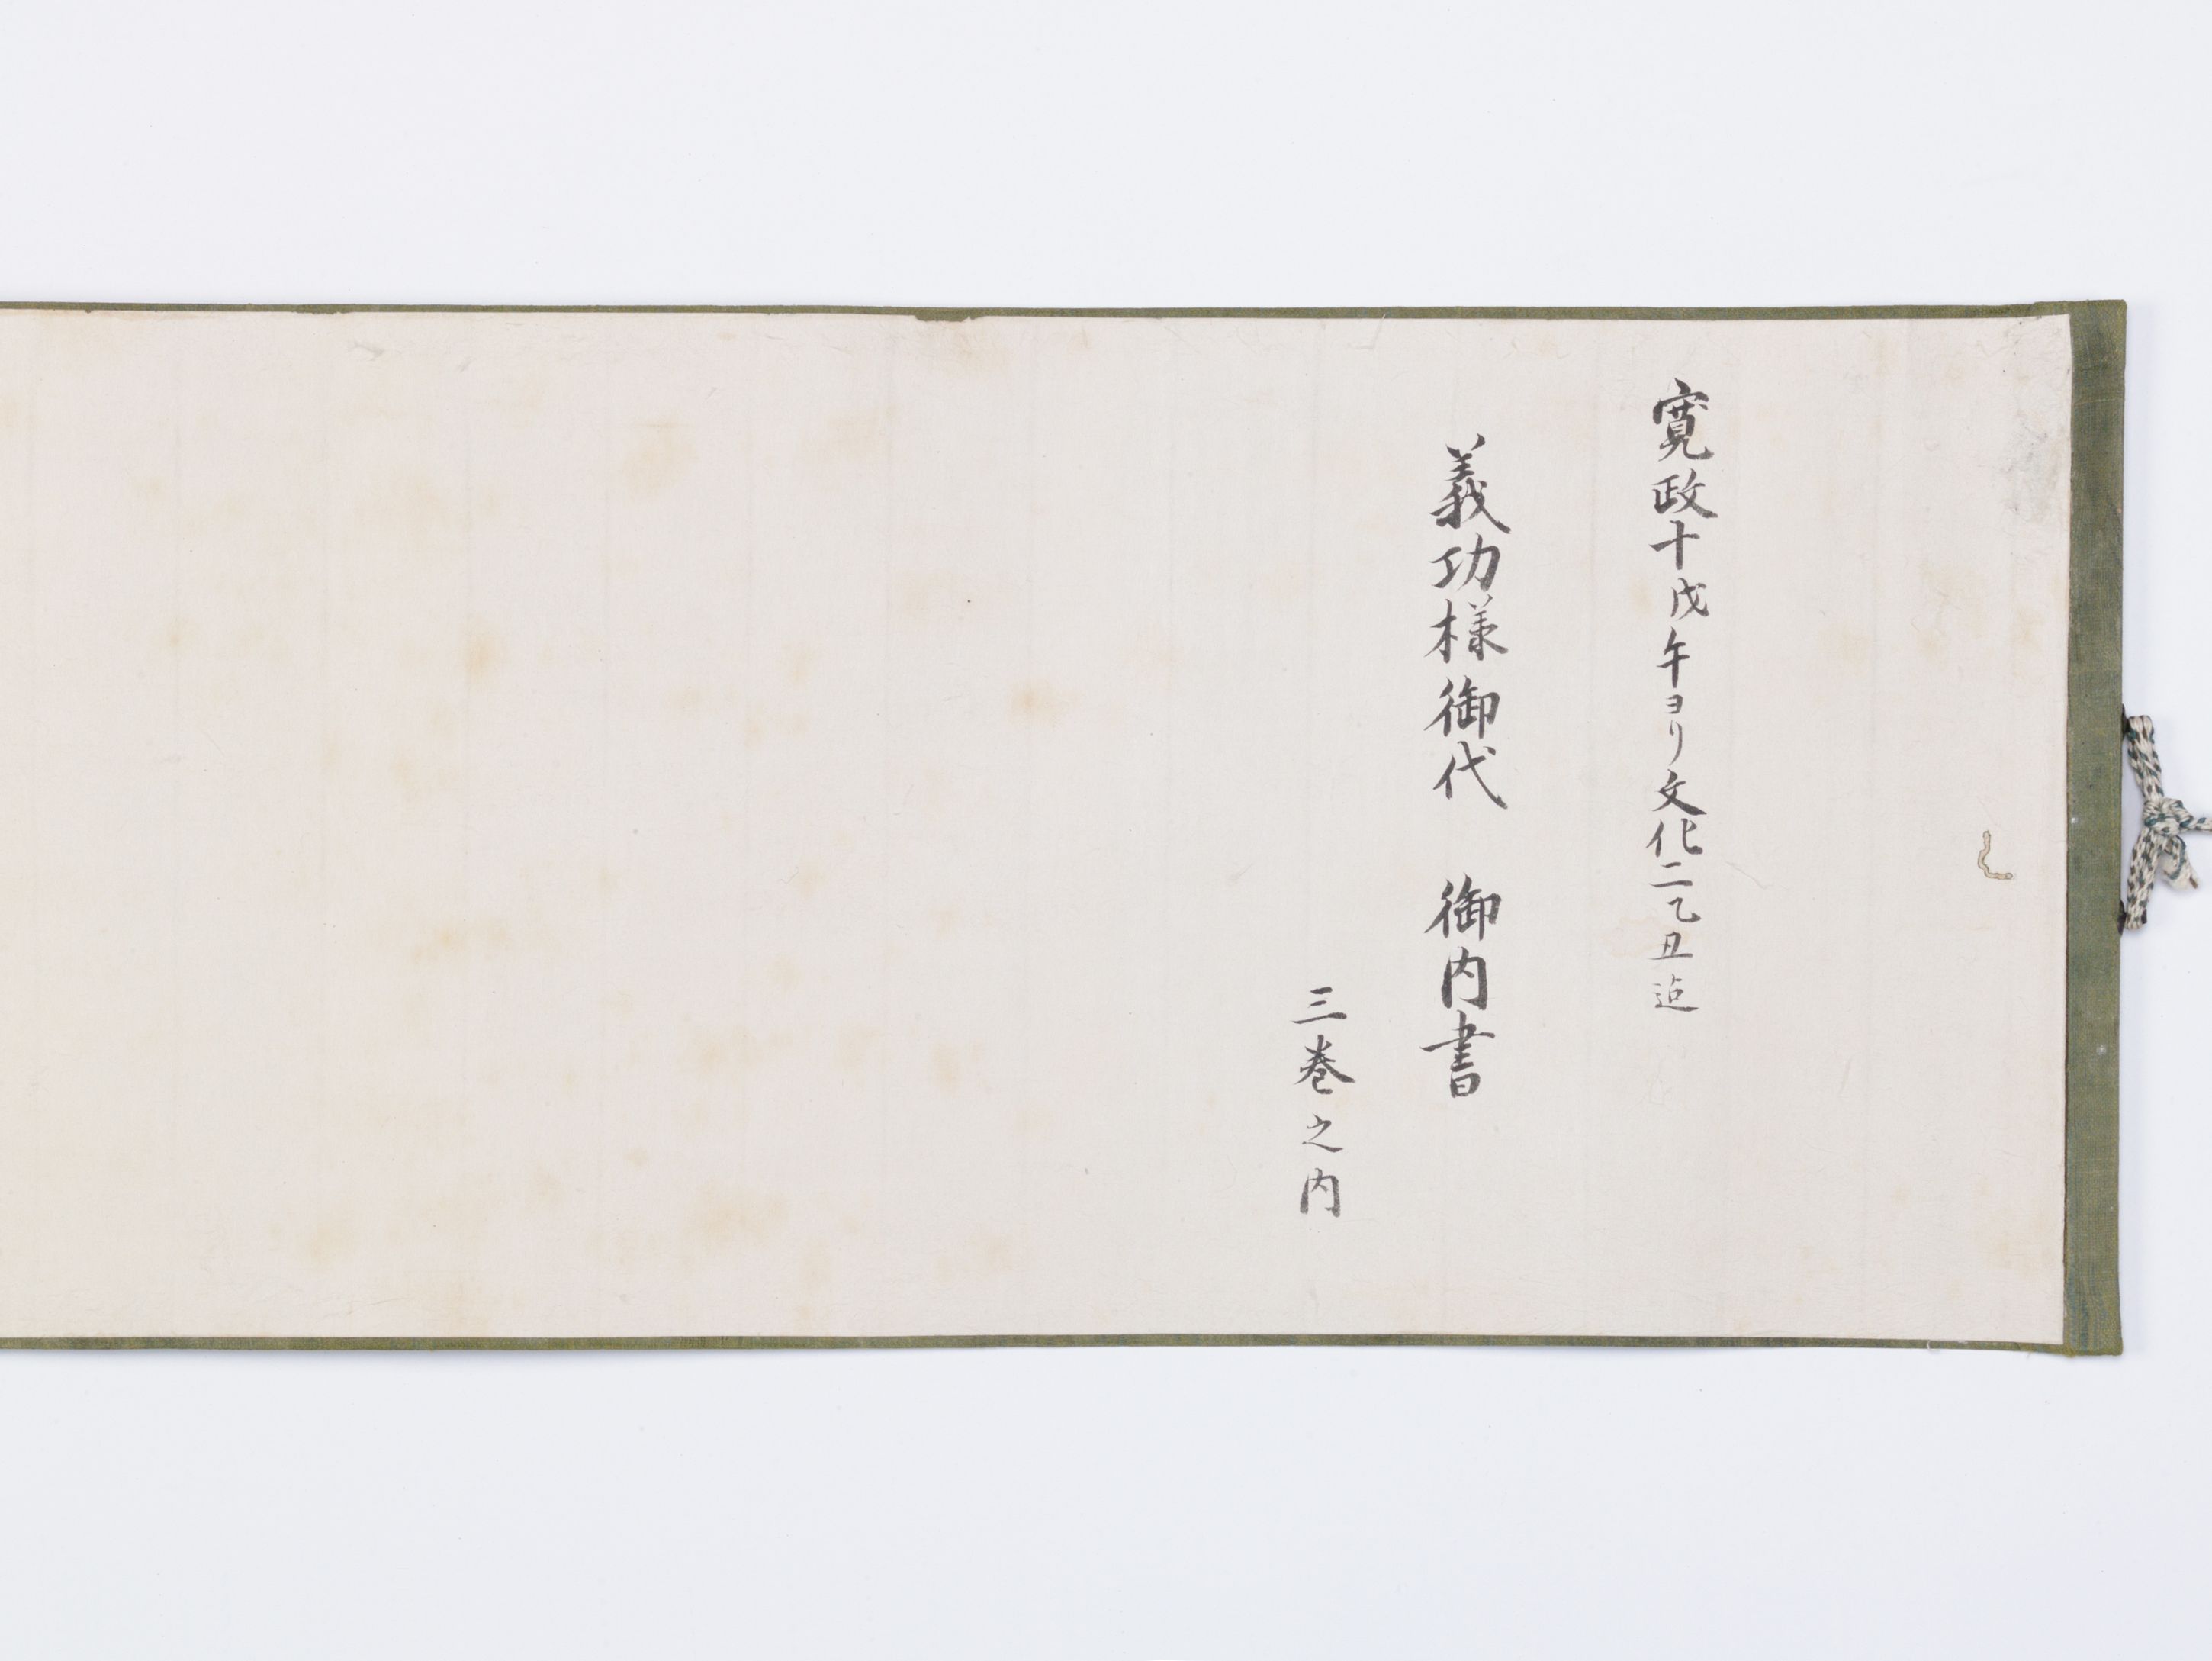 寛政十戊午ヨリ文化二乙丑迠
義功様御代　御内書
三巻之内